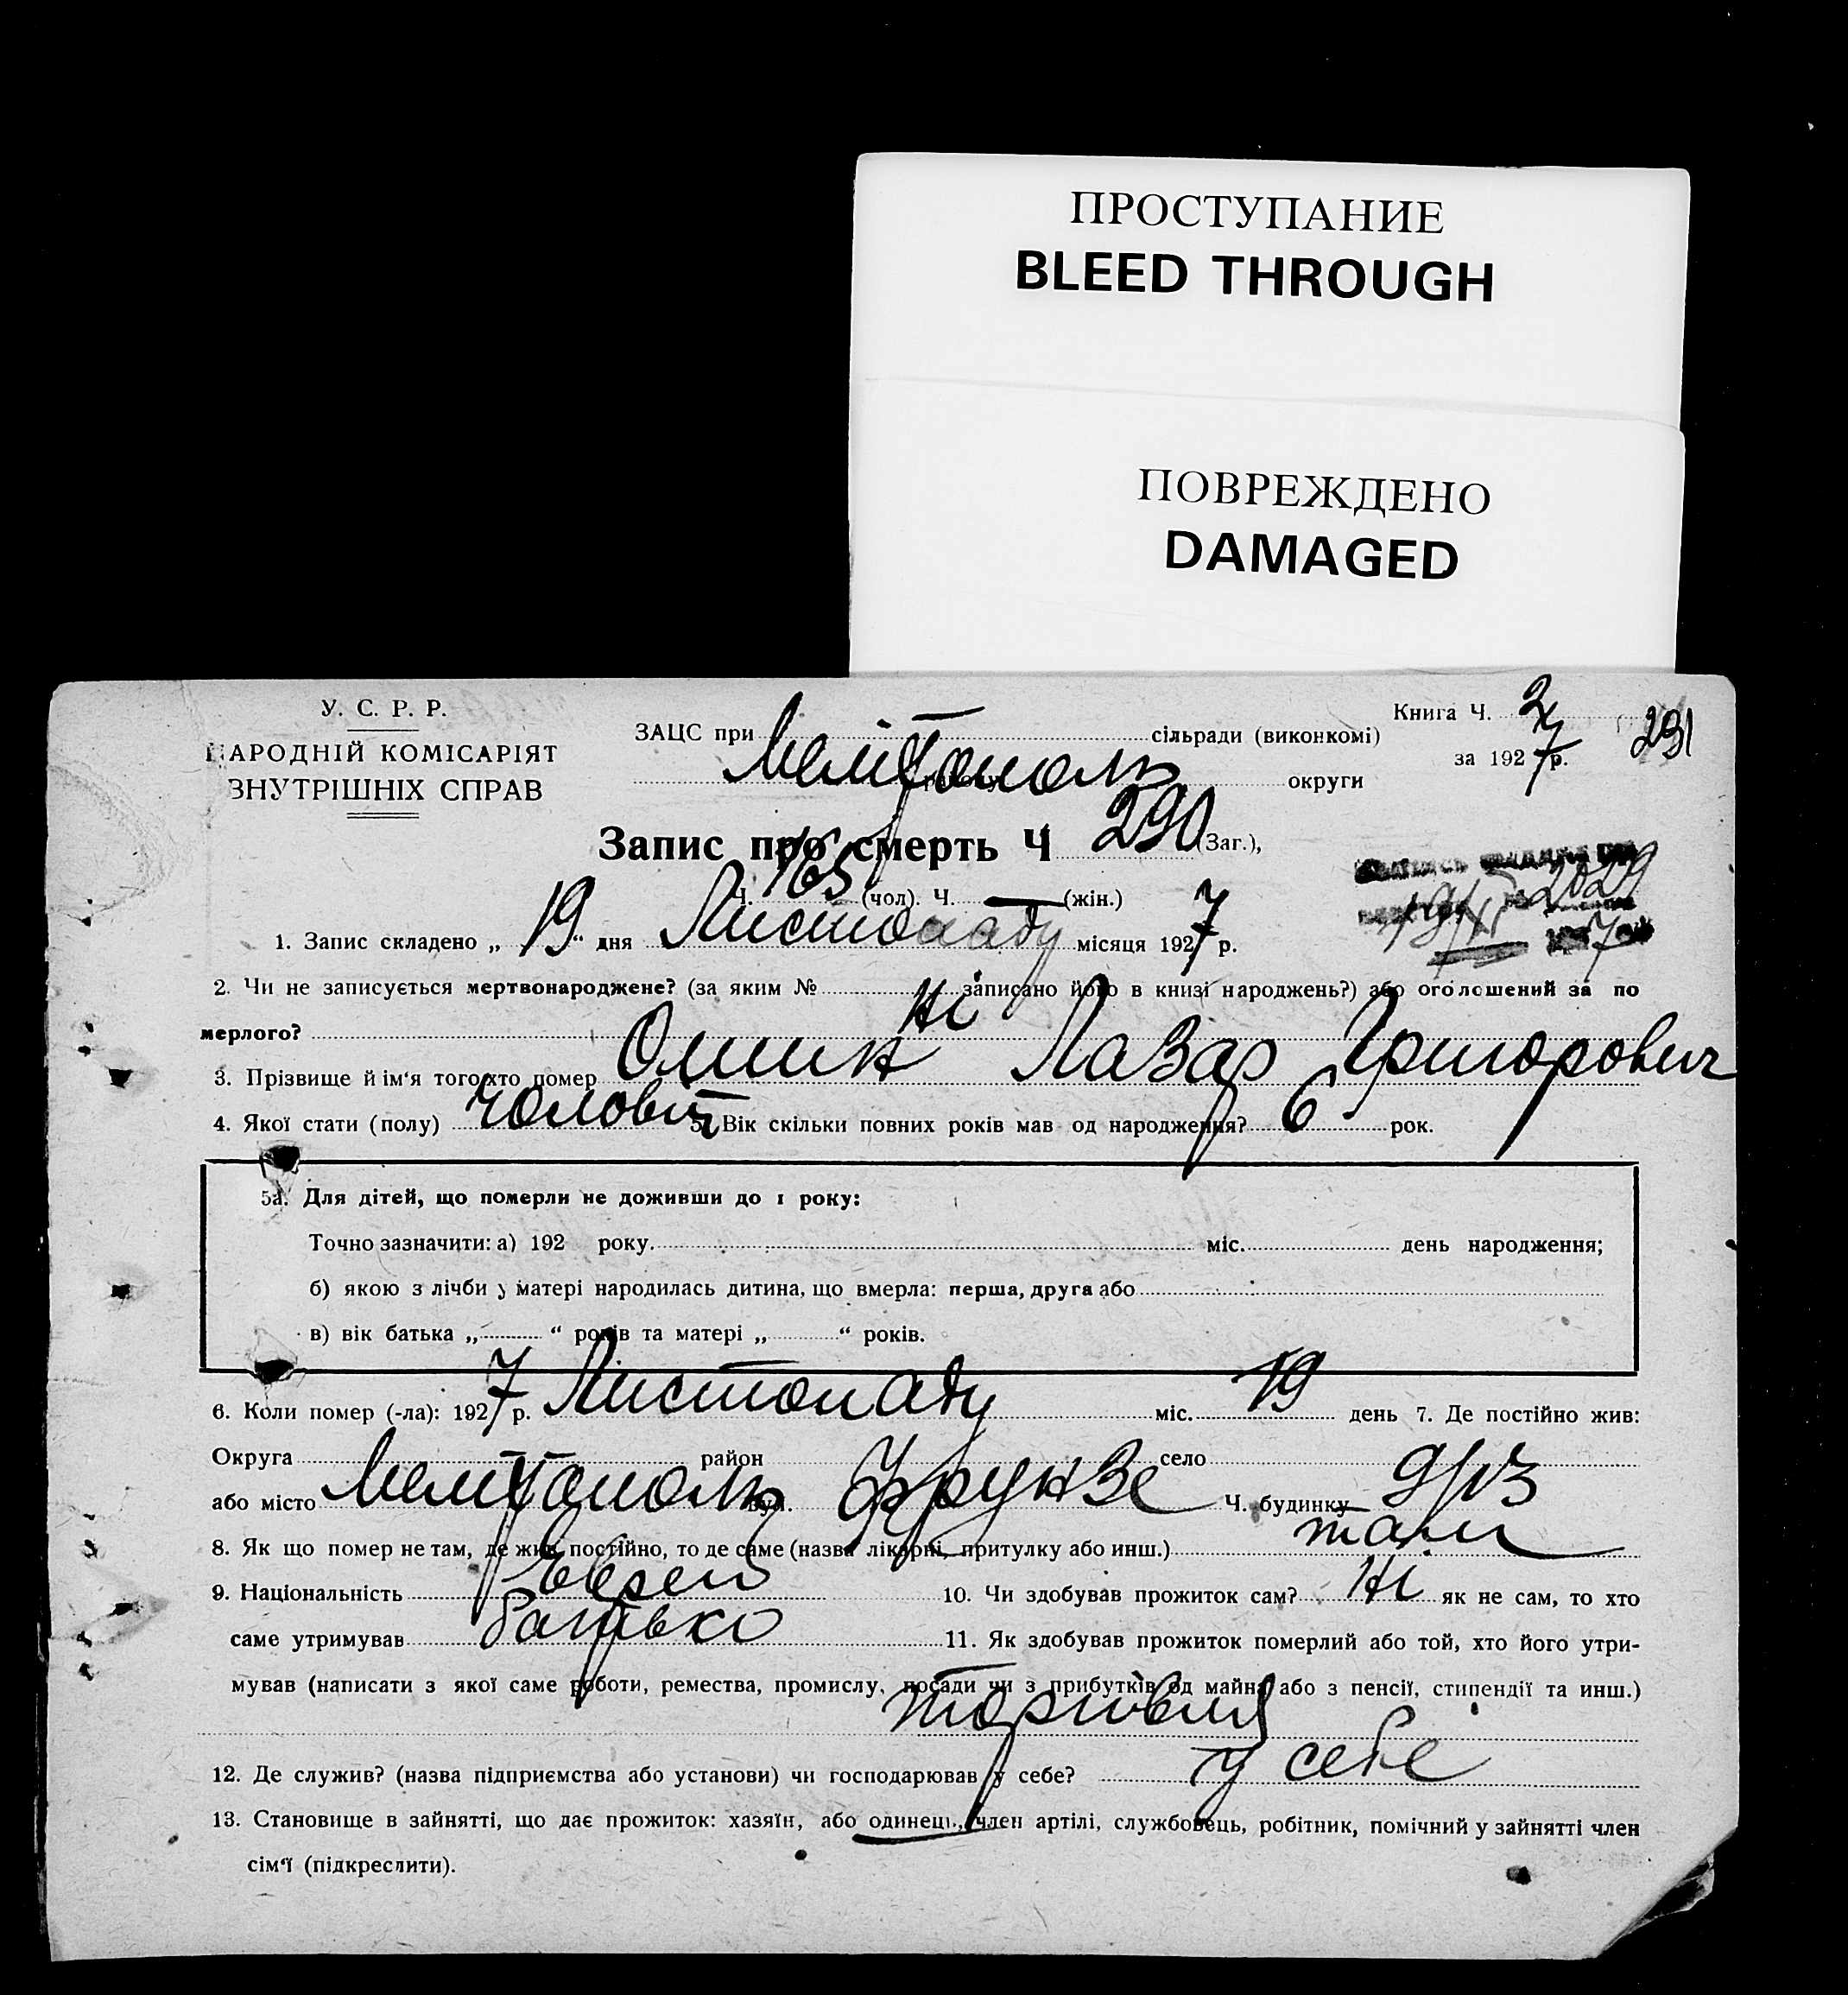 ПРОСТУПАНИЕ
BLEED THROUGH
ПОВРЕЖДЕНО
DAMAGED
У. С. Р. Р.
НАРОДНІЙ КОМІСАРІЯТ
ВНУТРІШНІХ СПРАВ
ЗАЦС при сільради (виконкомі)
Мелітополь округи
Книга Ч. 2
за 1927 р.
291
Запис про смерть Ч 290 (Заг.),
Ч. 165 (чол). Ч. — (жін.)
1. Запис складено „ 19 “ дня Листопаду місяця 1927 р.
2. Чи не записується мертвонароджене? (за яким № записано його в книзі народжень?) або оголошений за по
мерлого? Ні
3. Прізвище й ім‘я того хто помер Олшик Лазар Григорович
4. Якої стати (полу) чоловіч 5. Вік скільки повних років мав од народження? 6 рок.
5а. Для дітей, що померли не доживши до 1 року:
Точно зазначити: а) 192 року. міс. день народження;
б) якою з лічби у матері народилась дитина, що вмерла: перша, друга або
в) вік батька „ “ років та матері „ “ років.
6. Коли помер (-ла): 1927 р. Листопаду міс. 19 день 7. Де постійно жив:
Округа район село
або місто Мелітополь вул. Фрунзе Ч. будинку 9/13
8. Як що помер не там, де жив постійно, то де саме (назва лікарні, притулку або инш.) там
9. Національність Єврей 10. Чи здобував прожиток сам? Ні як не сам, то хто
саме утримував батько 11. Як здобував прожиток померлий або той, хто його утри-
мував (написати з якої саме роботи, ремества, промислу, посади чи з прибутків од майна або з пенсії, стипендії та инш.)
торгівля
12. Де служив? (назва підприємства або установи) чи господарював у себе? у себе
13. Становище в зайнятті, що дає прожиток: хазяїн, або одинець, член артілі, службовець, робітник, помічний у зайнятті член
сім‘ї (підкреслити).